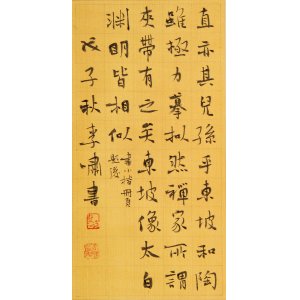 直亦其兒孫乎東坡和陶
雖極力摹拟然禪家所謂
夾帶有之矣東坡像太白
淵明皆相似
書小楷冊頁
戊子秋李嘯書